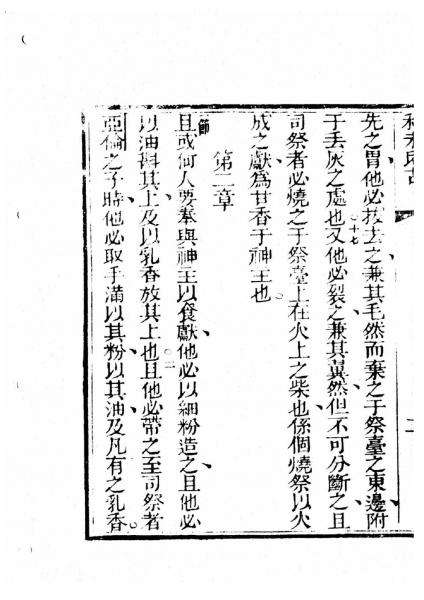 利未氏古
二
先之胃他必拔去之兼其毛然而棄之于祭臺之東邊附
于丢灰之處也○十七又他必裂之兼其翼然但不可分斷之且
司祭者必燒之于祭臺上在火上之柴也係個燒祭以火
成之獻為甘香于神主也。
第二章
節且或何人要奉與神主以食獻他必以細粉造之且他必
以油斟其上及以乳香放其上也○二且他必帶之至司祭者
亞倫之子時他必取手滿以其粉以其油及凡有之乳香。